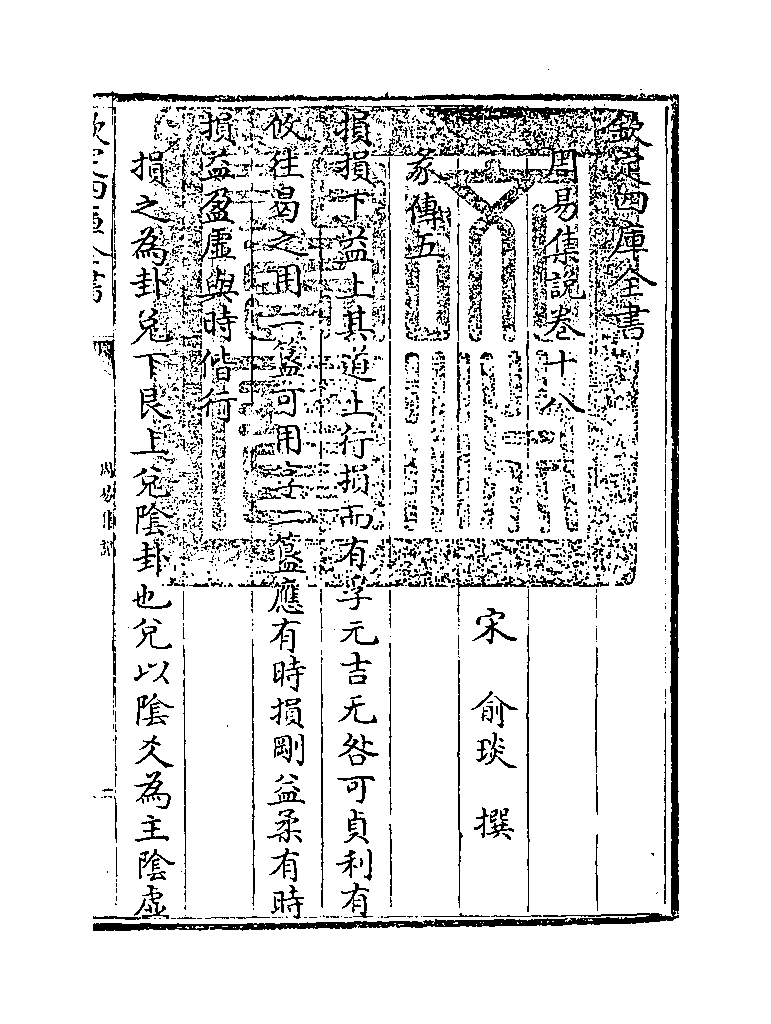 欽定四庫全書
周易集說卷十八
宋 俞琰 撰
彖傳五
損損下益上其道上行損而有孚元吉无咎可貞利有
攸往曷之用二簋可用享二簋應有時損剛益柔有時
損益盈虛與時偕行
損之為卦兌下艮上兌陰卦也兌以陰爻為主陰虛
欽定四庫全書
周易集說